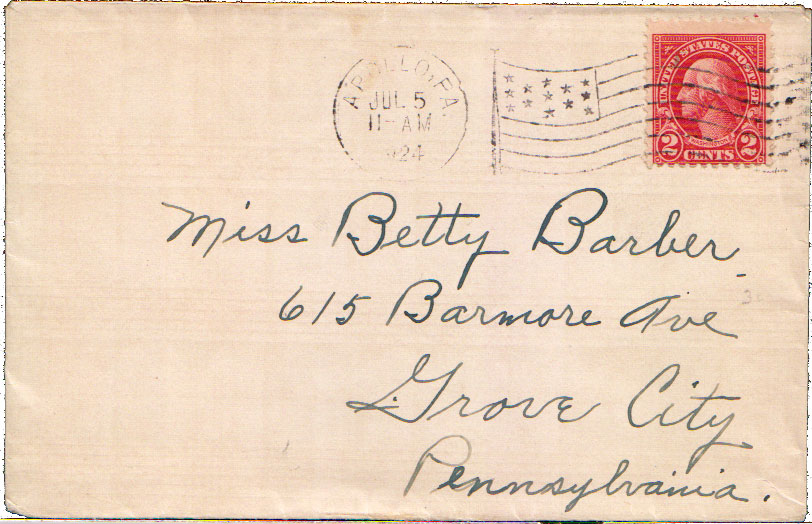 APOLLO, PA.
JUL 5
11-AM
1924
UNITED STATES POSTAGE
2 CENTS 2
Miss Betty Barber
615 Barmore Ave
Grove City
Pennsylvania.